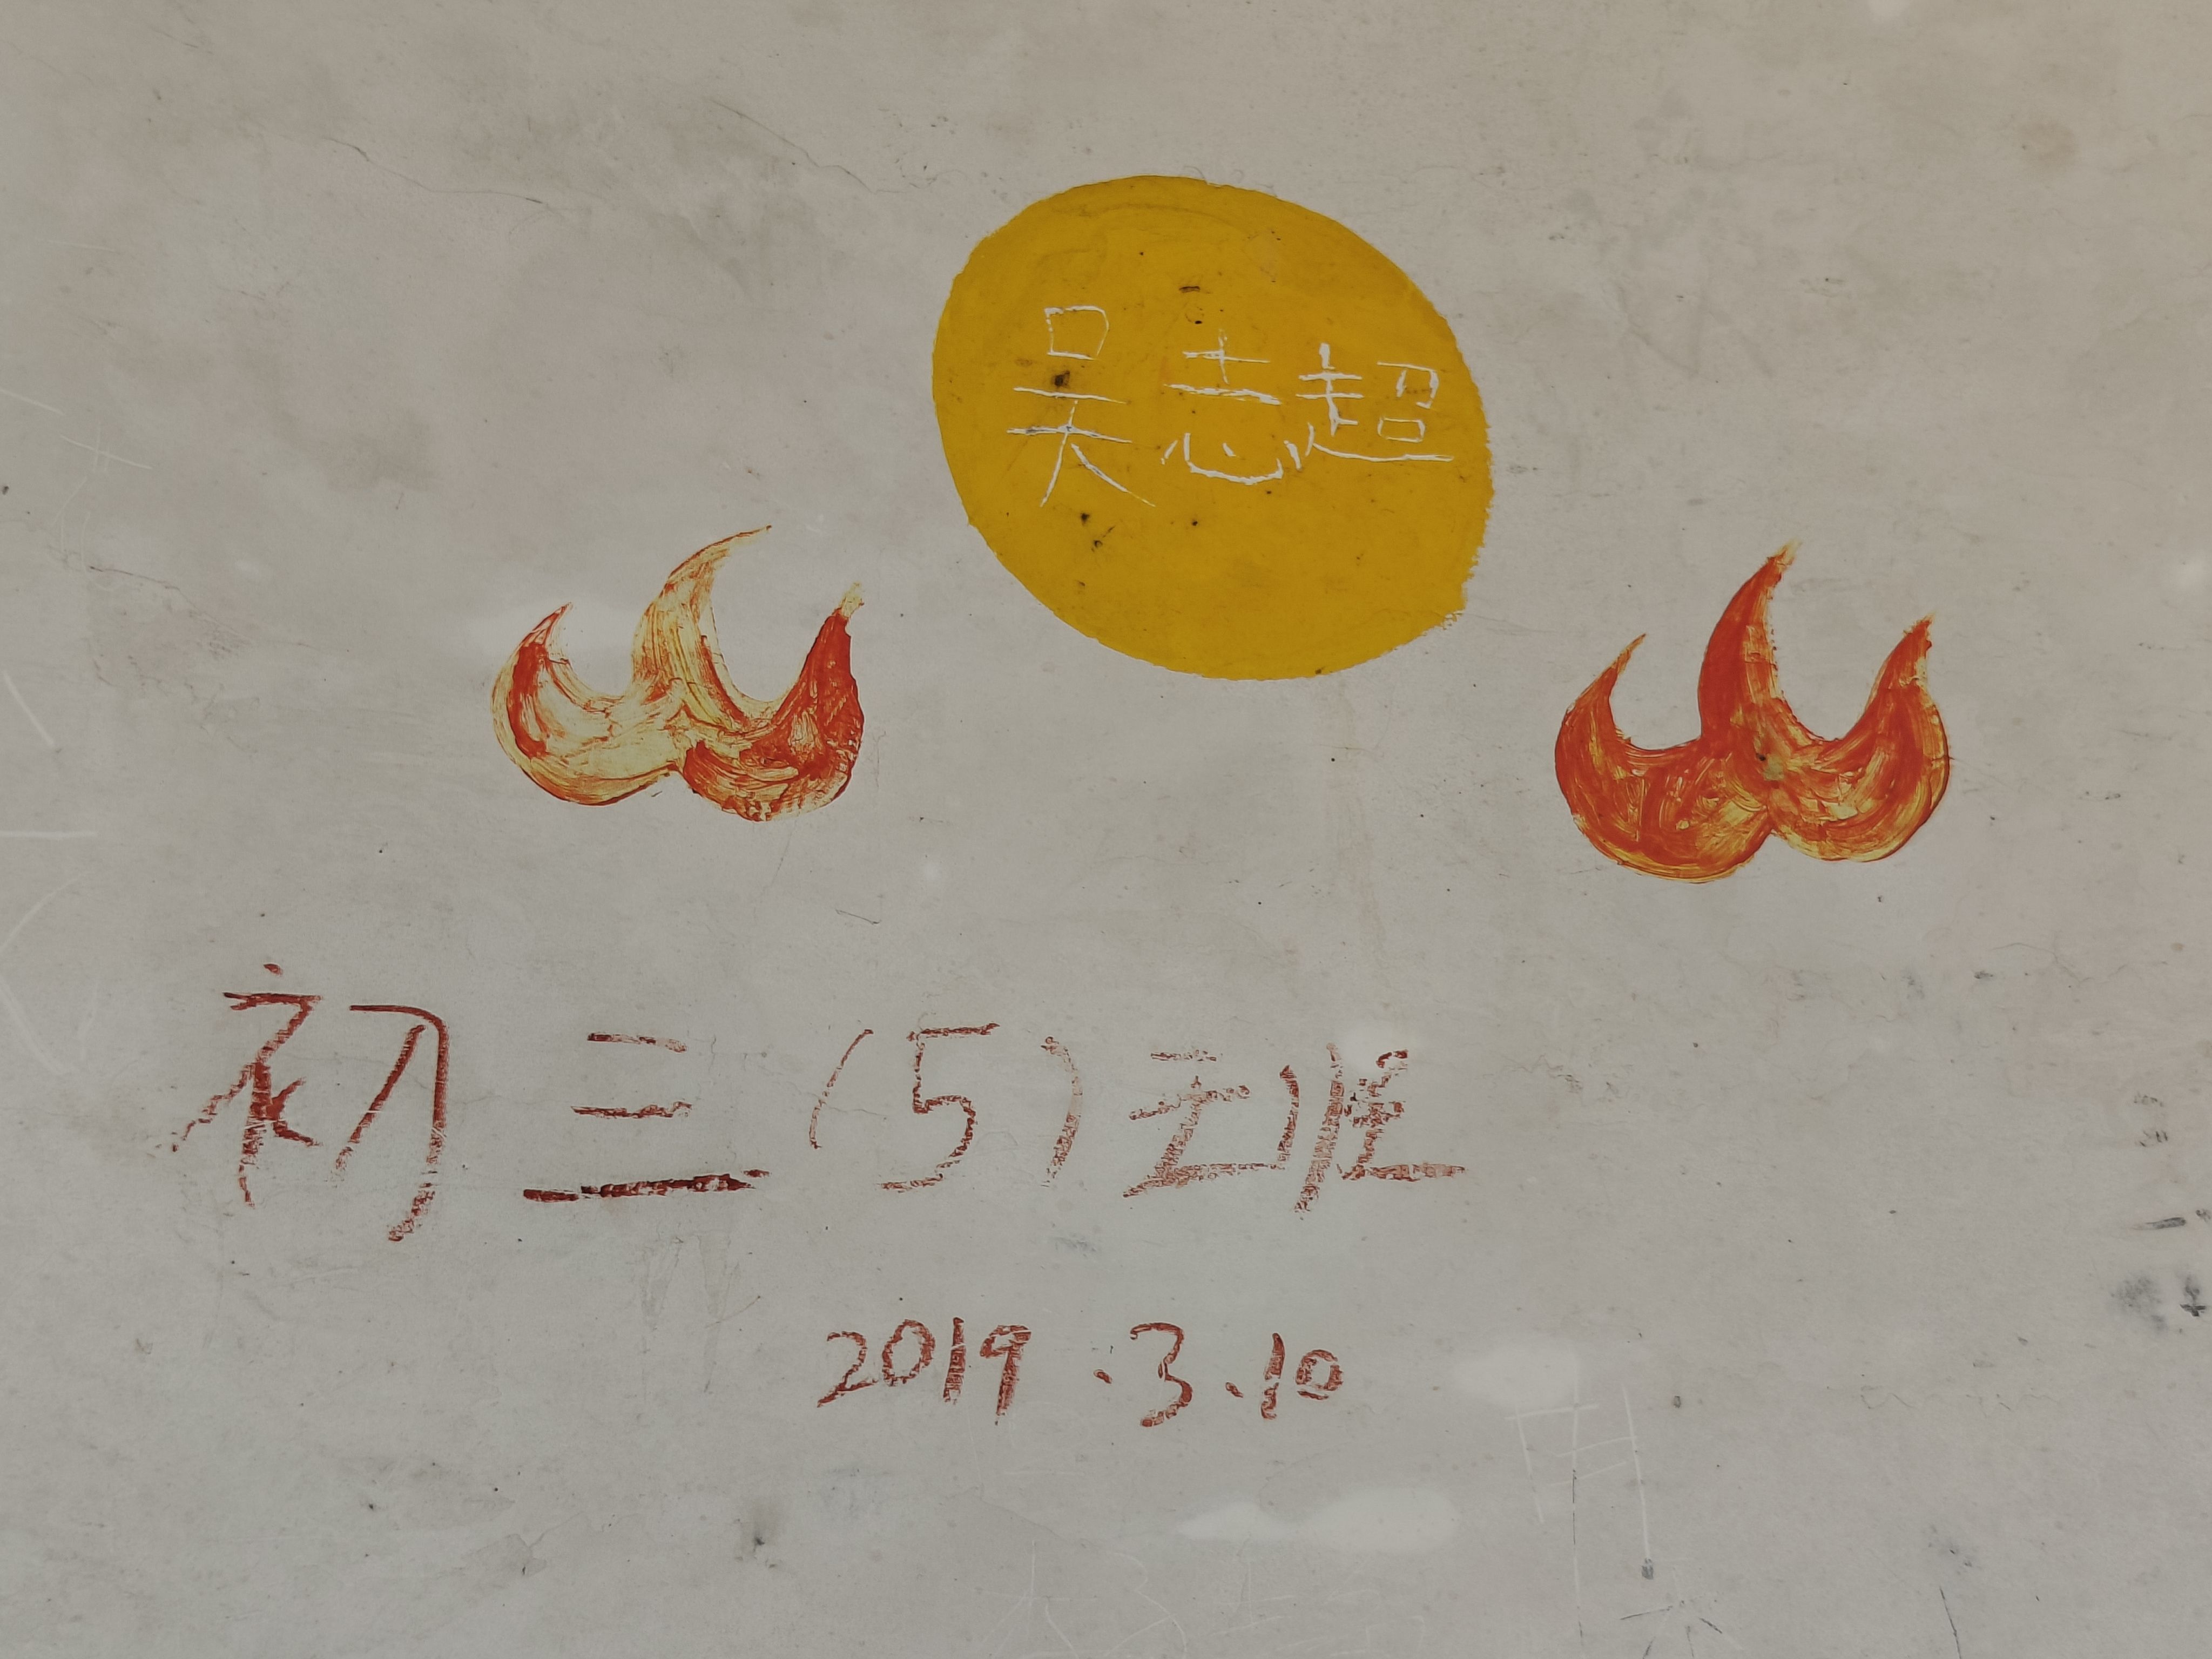 吴志超
初三(5)班
2019.3.10